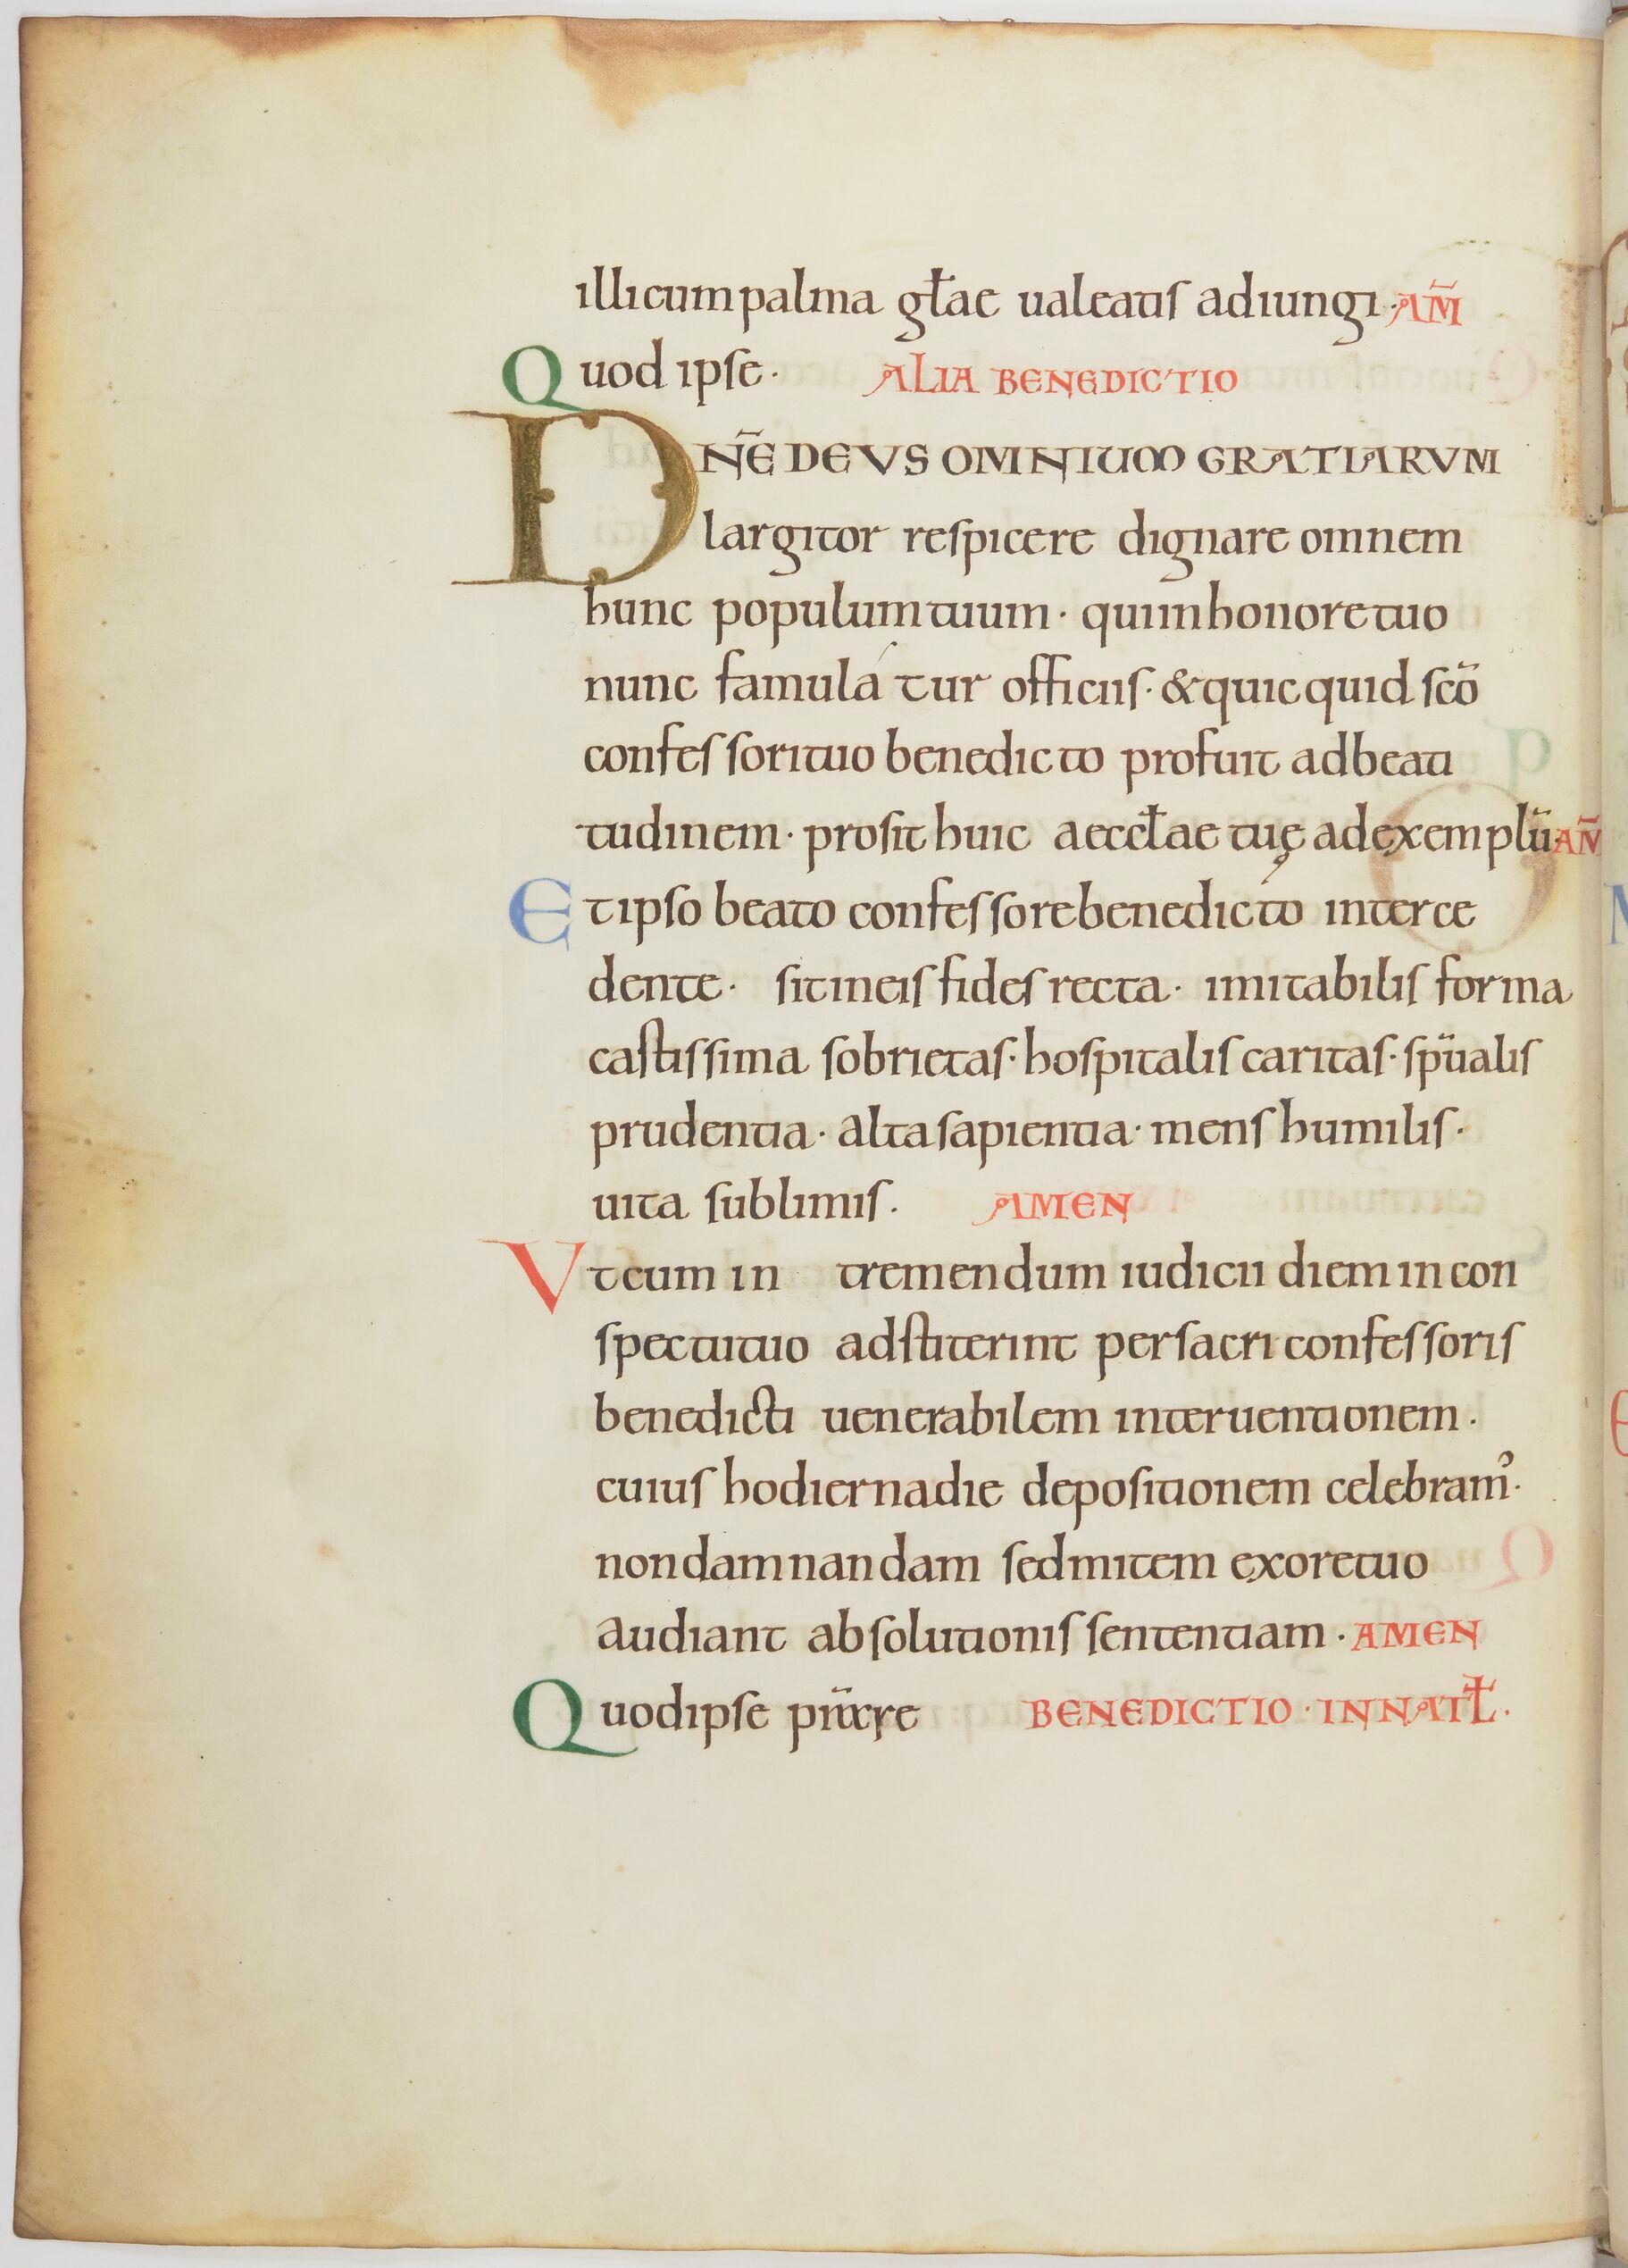 illicum palma gƚae ualeatis adiungi· AM̃
Quod ipse· ALIA BENEDICTIO
DÑE DEVS OMNIUM GRATIARVM
largitor respicere dignare omnem
hunc populum tuum· qui in honore tuo
nunc famulatur officiis· & quicquid scõ
confessori tuo benedicto profuit ad beati
tudinem· prosit huic aeccƚae tuę ad exemplũ· AÑ
Et ipso beato confessore benedicto interce
dente· sit in eis fides recta· imitabilis forma
castissima sobrietas· hospitalis caritas· spũalis
prudentia· alta sapientia· mens humilis·
uita sublimis· AMEN
Vt cum in tremendum iudicii diem in con
spectu tuo adstiterint per sacri confessoris
benedicti uenerabilem interuentionem·
cuius hodierna die depositionem celebramꝰ·
non damnandam sed mitem ex ore tuo
audiant absolutionis sententiam· AMEN
Quod ipse BENEDICTIO· IN NATƚ·